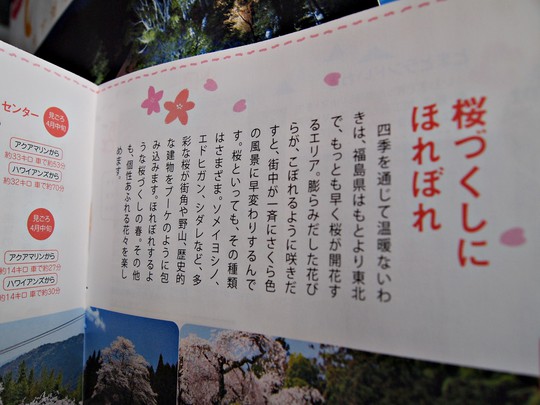 桜づくしに
ほれぼれ
四季を通じて温暖ないわ
きは、福島県はもとより東北
で、もっとも早く桜が開花す
るエリア。膨らみだした花び
らが、こぼれるように咲きだ
すと、街中が一斉にさくら色
の風景に早変わりするんで
す。桜といっても、その種類
はさまざま。ソメイヨシノ、
エドヒガン、シダレなど、多
彩な桜が街角や野山、歴史的
な建物をブーケのように包
み込みます。ほれぼれするよ
うな桜づくしの春。その他
も、個性あふれる花々を楽し
めます。
センター
見ごろ
4月中旬
アクアマリンから
約33キロ 車で約53分
ハワイアンズから
約32キロ 車で約70分
見ごろ
4月中旬
アクアマリンから
約14キロ 車で約27分
ハワイアンズから
約14キロ 車で約30分